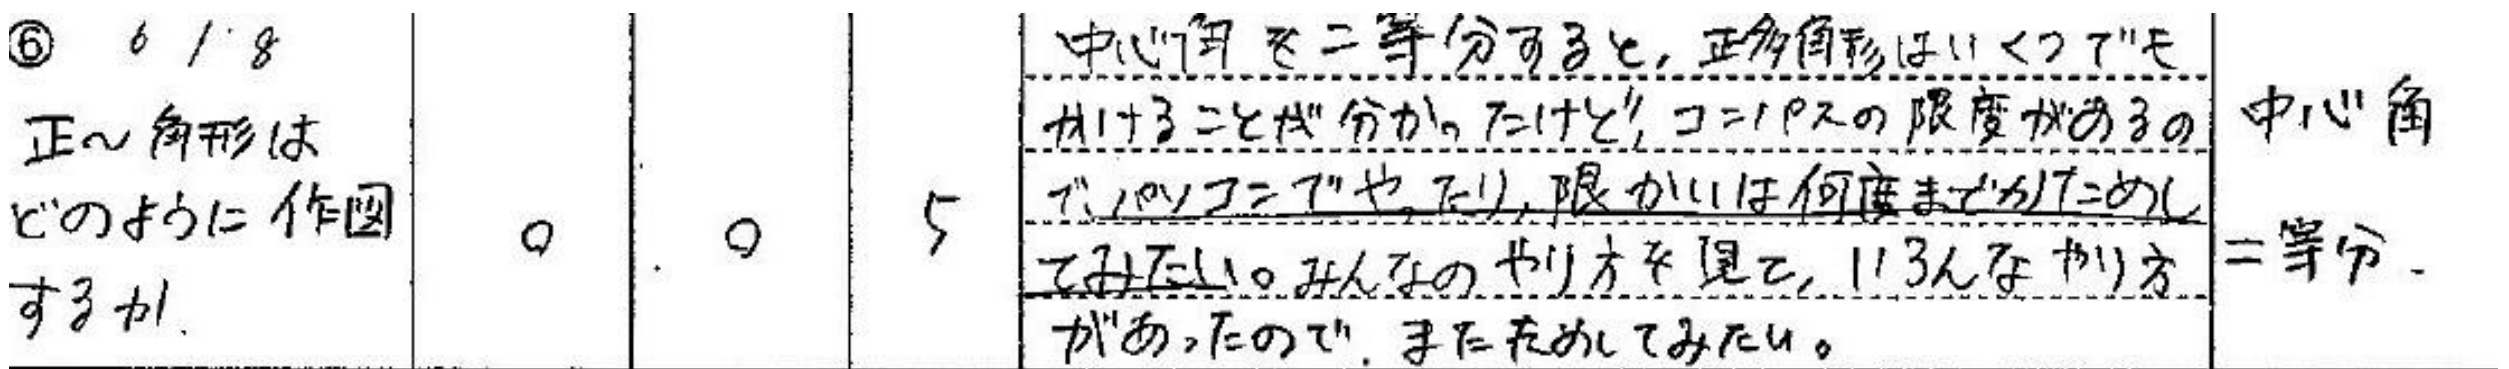 ⑥ 6/8
正〜角形は
どのように作図
するか.
0
0
5
中心角を二等分すると,正多角形はいくつでも
かけることが分かったけど,コンパスの限度があるの
で,パソコンでやったり,限かいは何度までかためし
てみたい。みんなのやり方を見て,いろんなやり方
があったので,またためしてみたい。
中心角
二等分.